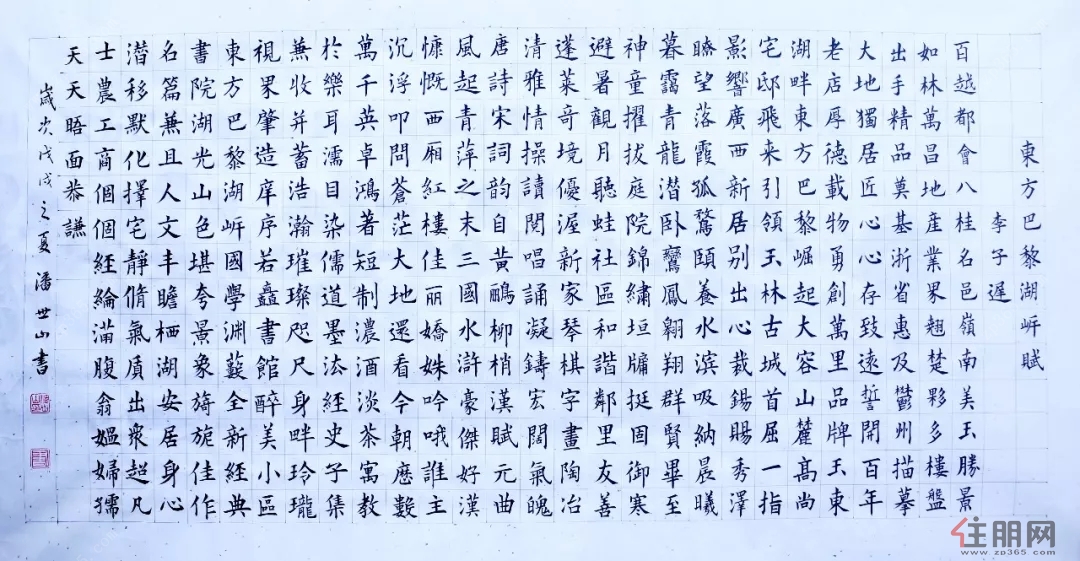 東方巴黎湖㟁賦
李子遲
百越都會八桂名邑嶺南美玉勝景
如林萬昌地産業果翹楚夥多樓盤
出手精品奠基浙省惠及鬱州描摹
大地獨居匠心心存致遠誓開百年
老店厚德載物勇創萬里品牌玉東
湖畔東方巴黎崛起大容山麓高尚
宅邸飛来引領玉林古城首屈一指
影響廣西新居别出心裁錫賜秀澤
瞭望落霞孤鶩頤養水滨吸納晨曦
暮靄青龍潜卧鸞鳳翱翔群賢畢至
神童擢拔庭院錦繡垣牖挺固御寒
避暑觀月聽蛙社區和諧鄰里友善
蓬萊奇境優渥新家琴棋字畫陶冶
清雅情操讀閲唱誦凝鑄宏闊氣魄
唐詩宋詞韵自黄鸝柳梢漢賦元曲
風起青萍之末三國水滸豪傑好漢
慷慨西厢紅樓佳丽嬌姝吟哦誰主
沉浮叩問蒼茫大地還看今朝應數
萬千英卓鴻著短制濃酒淡茶寓教
於樂耳濡目染儒道墨法經史子集
兼收并蓄浩瀚璀璨咫尺身畔玲瓏
視果肇造庠序若書館醉美小區
東方巴黎湖㟁國學渊薮全新經典
書院湖光山色堪夸景象旖旎佳作
名篇兼且人文丰瞻栖湖安居身心
潜移默化擇宅靜脩氣質出衆超凡
士農工商個個經綸滿腹翁媪婦孺
天天晤面恭謙
歲次戊戌之夏潘世山書
住朋网
www.zp365.com